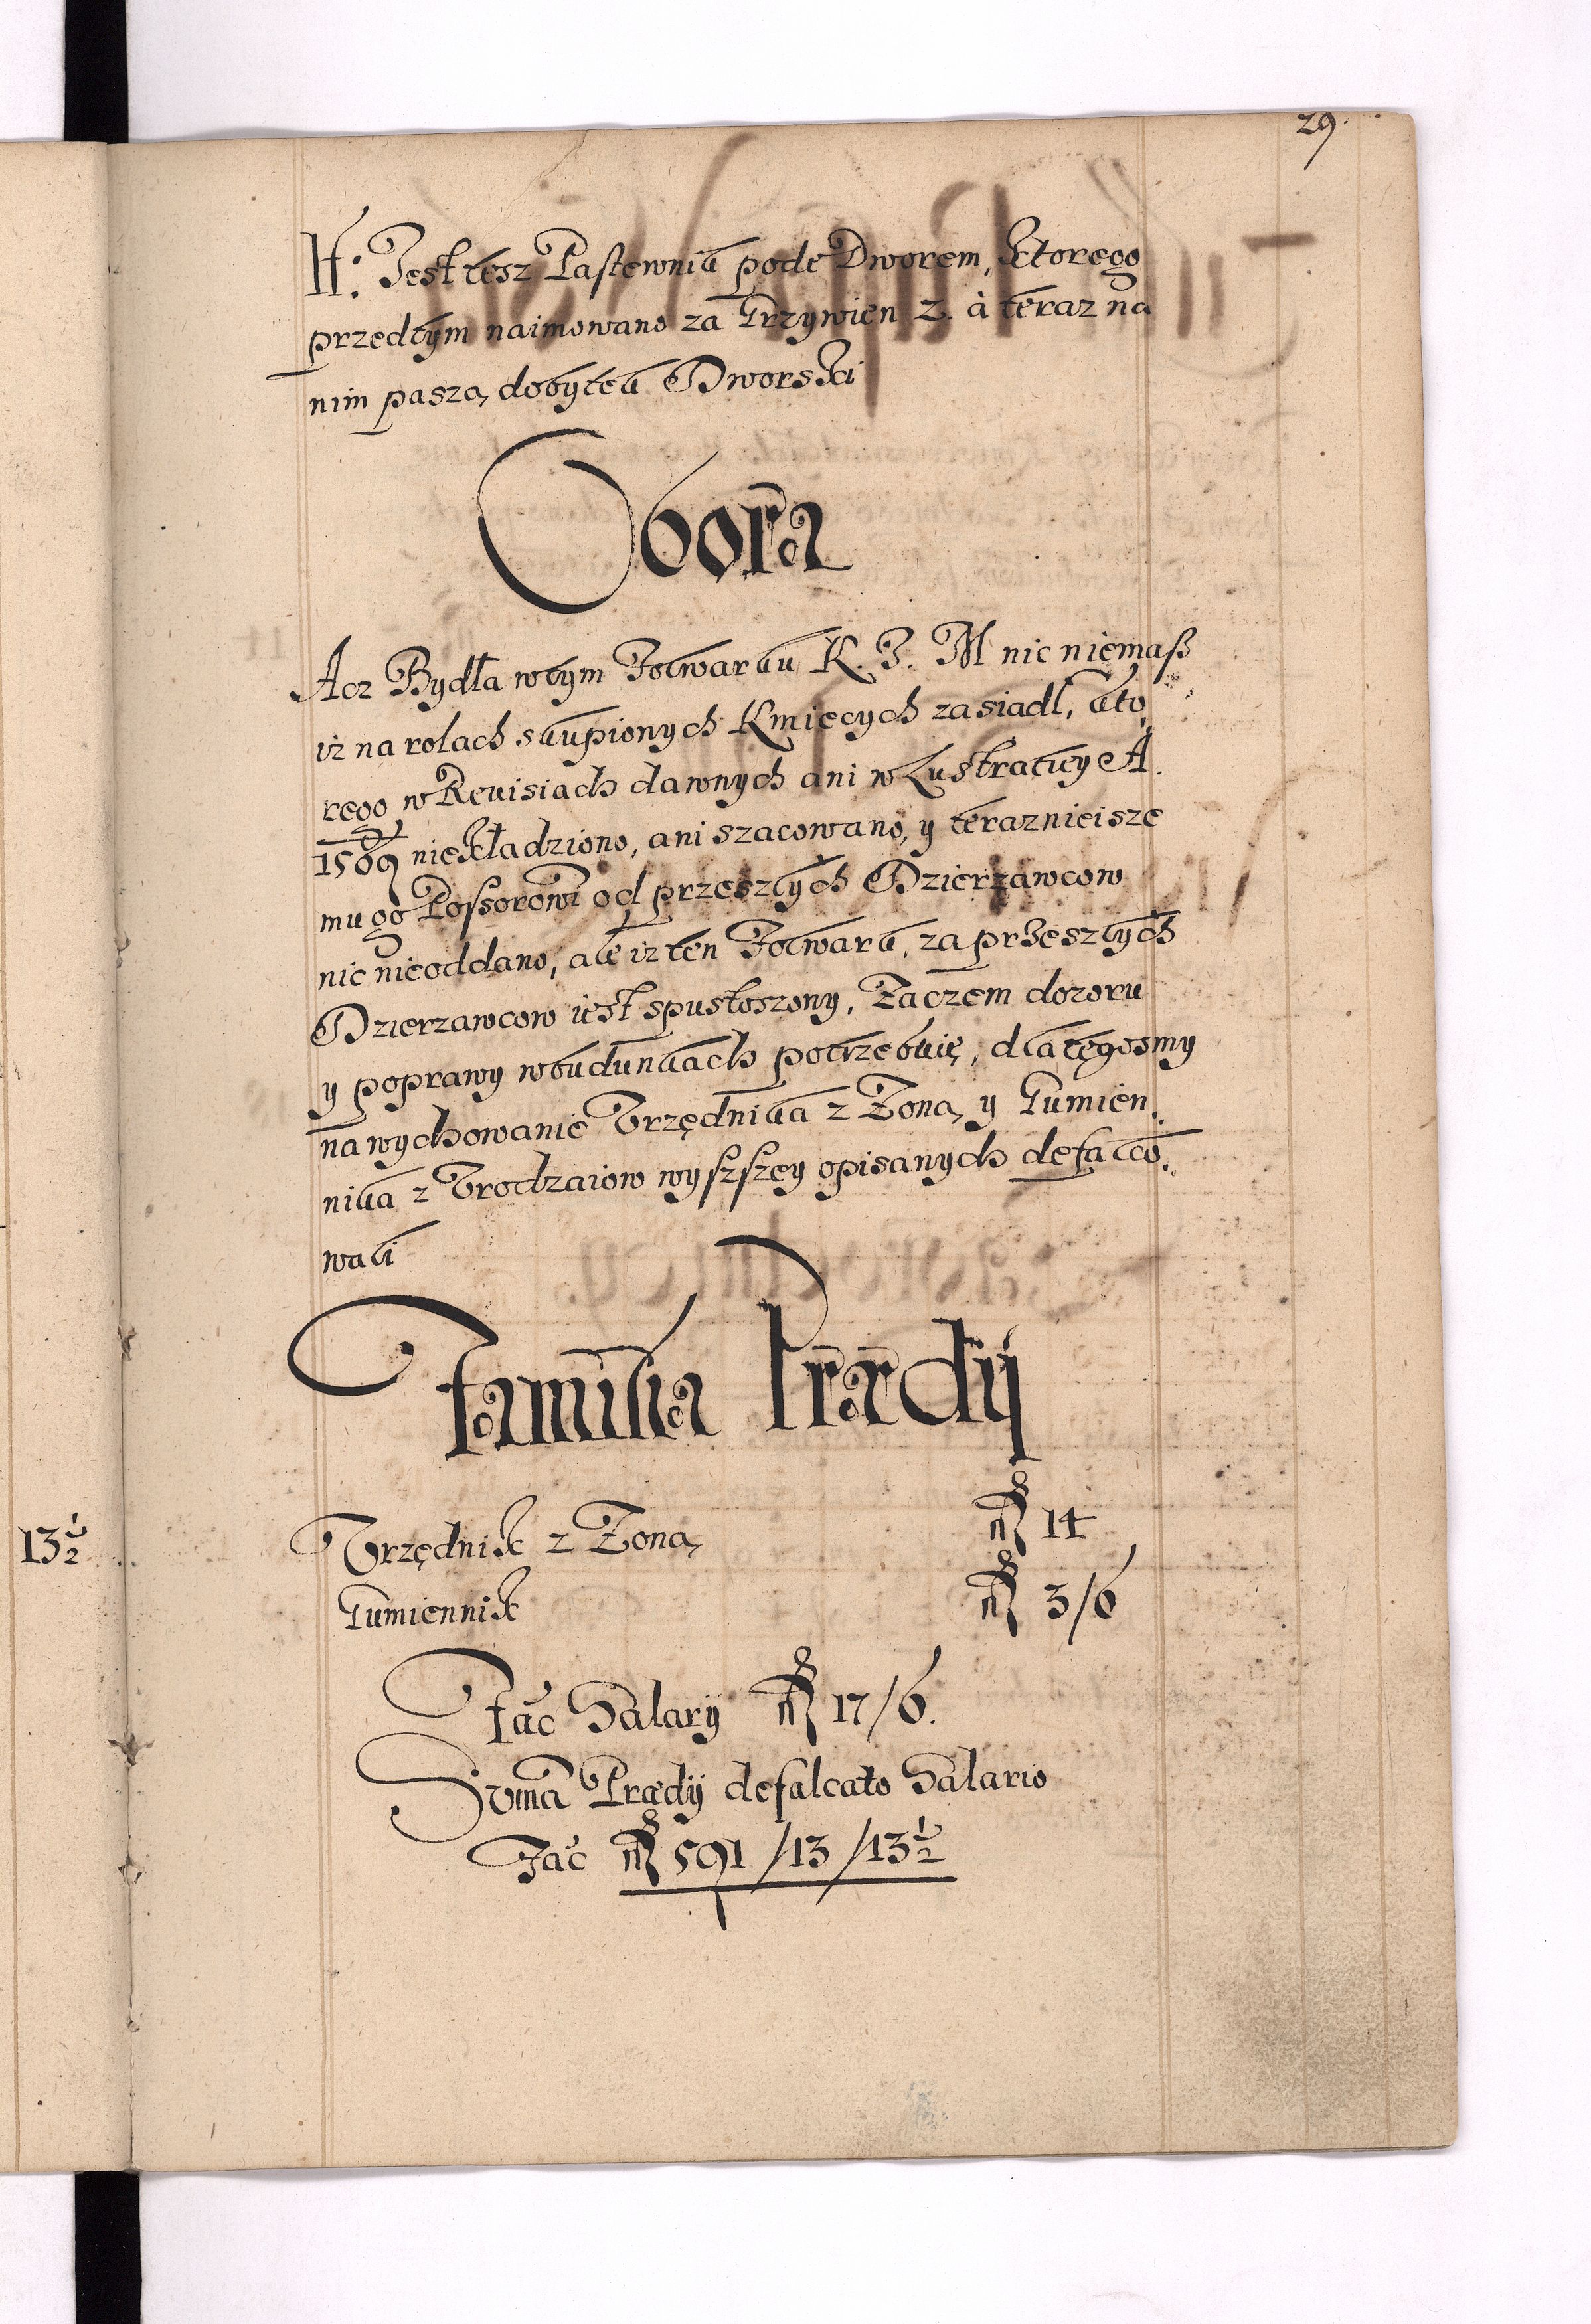 29.
It: Jest tesz Pastewnik pode Dworem, ktorego
przedtym naimowano za Grzywien 2. à teraz na
nim paszą dobytek Dworski
Obora
Acz Bydła wtym Folwarku K. J. M nic niemaß
iz na rolach skupionych Kmiecych zasiadl, kto,
rego w Reuisiach dawnych ani w Lustratiey A.
1569 niekładziono, ani szacowano, y teraznieisze
mu go Possorowi od przeszlych Dzierzawcow
nic nieoddano, ale iz ten Folwark, za przeszlych
Dzierzawcow iest spustoszony, Zaczem dozoru
y poprawy wbudunkach potrzebuie, dlategosmy
na wychowanie Vrzędnika z Zoną y Gumien,
nika z Vrodzaiow wyszszey opisanych defalco,
wali
Familia Prædij
Vrzędnik z Zoną 14
13½
Gumiennik 3/6
Fac Salarij 17/6.
Suma Prædij defalcato Salario
Fac 591/13/13½